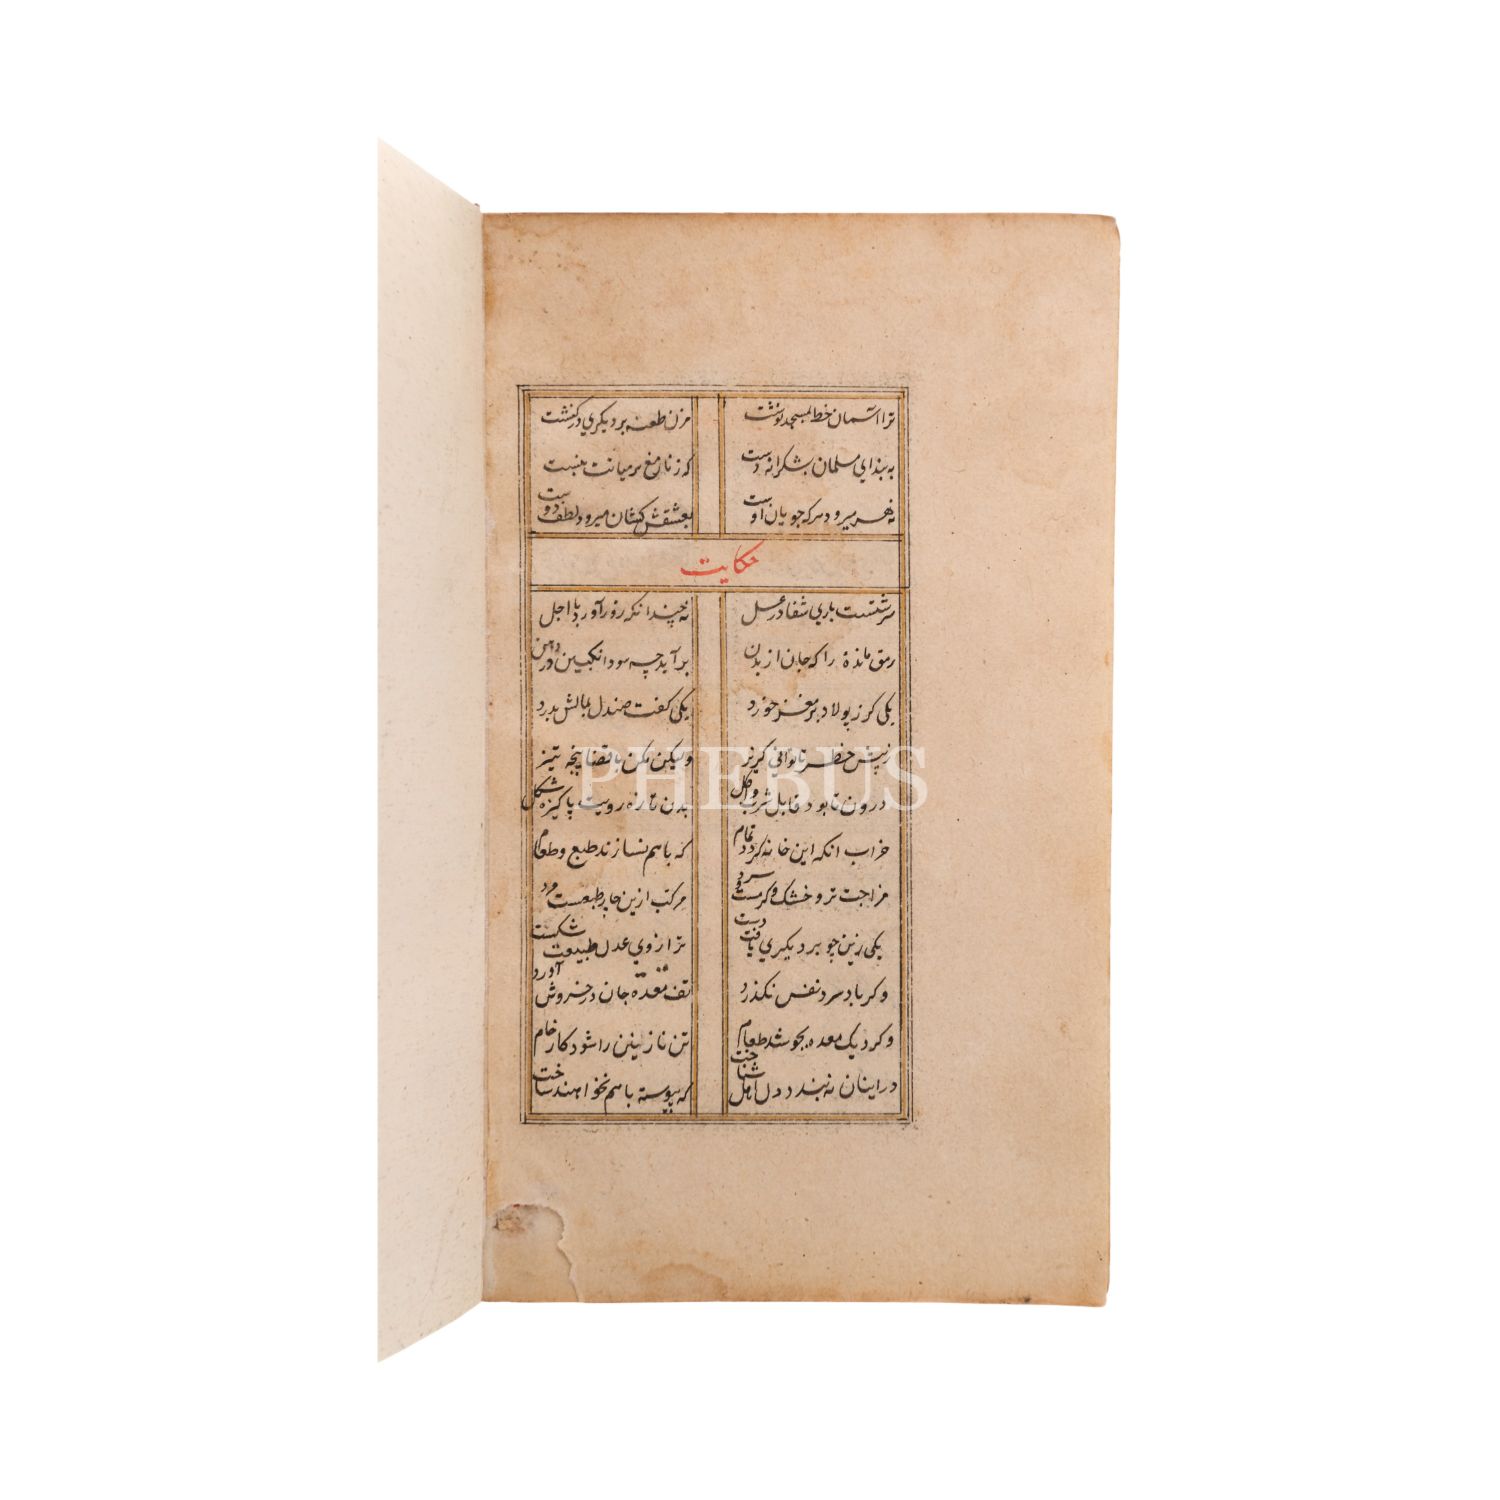 ترا آسمان خط بمسجد نوشت مزن طعنه بر دیگری در کنشت
به بند ای مسلمان بشکرانه دست که زنار مغ بر میانت نبست
نه خود میرود هر که جویان اوست بعنفش کشان میرود لطف دوست
حکایت
سرشتست باری شفا در عسل نه چندانکه زور آورد با اجل
رمق مانده را که جان از بدن برآید چه سود انکبین در دهن
یکی کرز پولاد بر مغز خورد یکی کفت صندل بمالش بدرد
ز پیش خطر تا توانی کریز ولیکن مکن با قضا پنجه تیز
PHEBUS
درون تا بود قابل شرب و اکل بدن تازه رویست پاکیزه شکل
خراب انکه این خانه کردد تمام که باهم نسازند طبع و طعام
مزاجت تر و خشک و کرمست و سرد مرکب ازین چار طبعست مرد
یکی زین چو بر دیکری یافت دست ترازوی عدل طبیعت شکست
وکر باد سرد نفس نکذرد تف معده جان در خروش آورد
وکر دیک معده بجوشد طعام تن نازنین را شود کار خام
در اینان نه بندد دل اهل شناخت که پیوسته باهم نخواهند ساخت